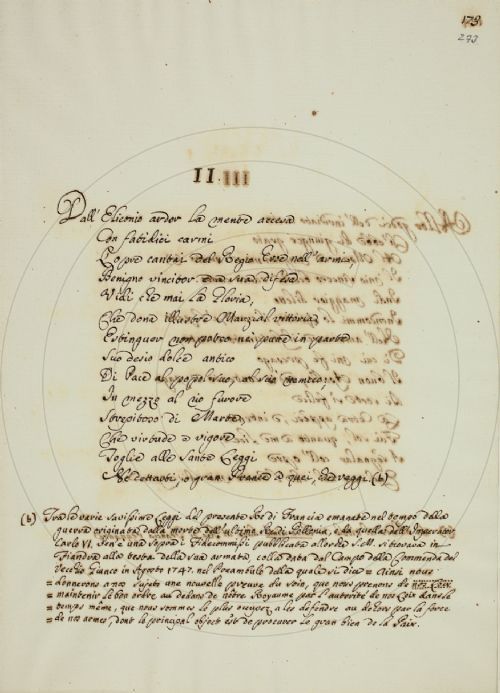 173.
273
II
Dall' Eliconio ardor la mente accesa
Con fatidici carmi
L'opre cantai del Regio Eroe nell' armi,
Benigno vincitor
Vidi che mai la Gloria,
Che dona illustre Marzial vittoria
Estinguer non potea nè pure in parte
Suo desio dolce antico
Di Pace al popol suo, al suo nemico;
In mezzo al rio furore
Strepitoso di Marte
Che virtude e vigore
Toglie alle Sante Leggi
dettarti, o gran Francia a quei, che reggi. (b)
(b) Tra le varie savissime Leggi del presente Rè di Francia emanate nel tempo della
guerra originata dalla morte dell' ultimo Rè di Pollonia, e da quella dell' Imperator
Carlo VI, sen'è una sopra i Fidecommissi pubblicata allorchè S. M. si trovava in
Fiandra alla testa della sua armata, colla data del Campo della Commenda del
Vecchio Giunco in Agosto 1747. nel Preambulo della quale si dice = Ainsi nous
= donnerons a nos sujets une nouvelle preuve du soin, que nous prenons de
= maintenir le bon ordre au dedans de nôtre Royaume par l'autorité de nos Loix dans le
= temps même, que nous sommes le plus occupez a les defendre au dehors par la force
= de nos armes, dont le principal object est de procurer le gran bien de la Paix.